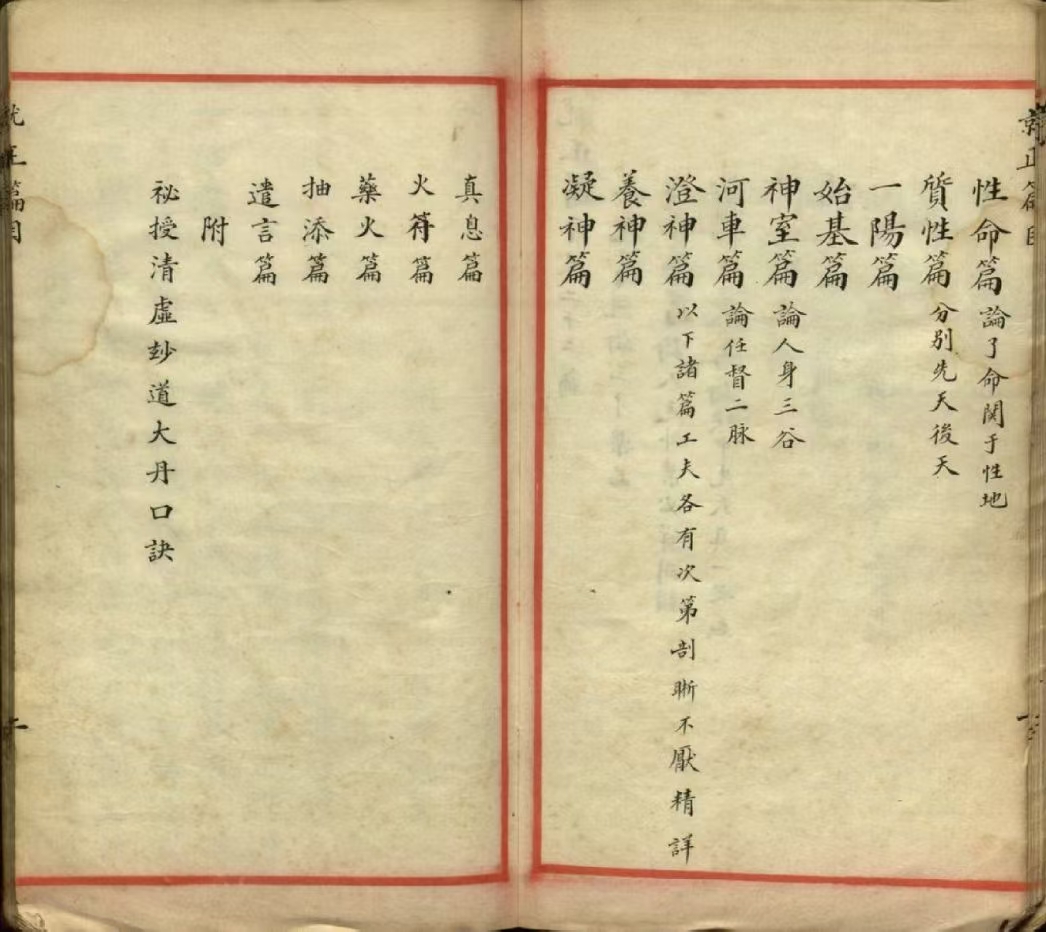 性命篇 論了命関于性地
質性篇 分别先天後天
一陽篇
始基篇
神室篇 論人身三谷
河車篇 論任督二脉
澄神篇 以下諸篇工夫各有次第剖晣不厭精詳
養神篇
凝神篇
真息篇
火符篇
藥火篇
抽添篇
遣言篇
附
祕授清虛玅道大丹口訣